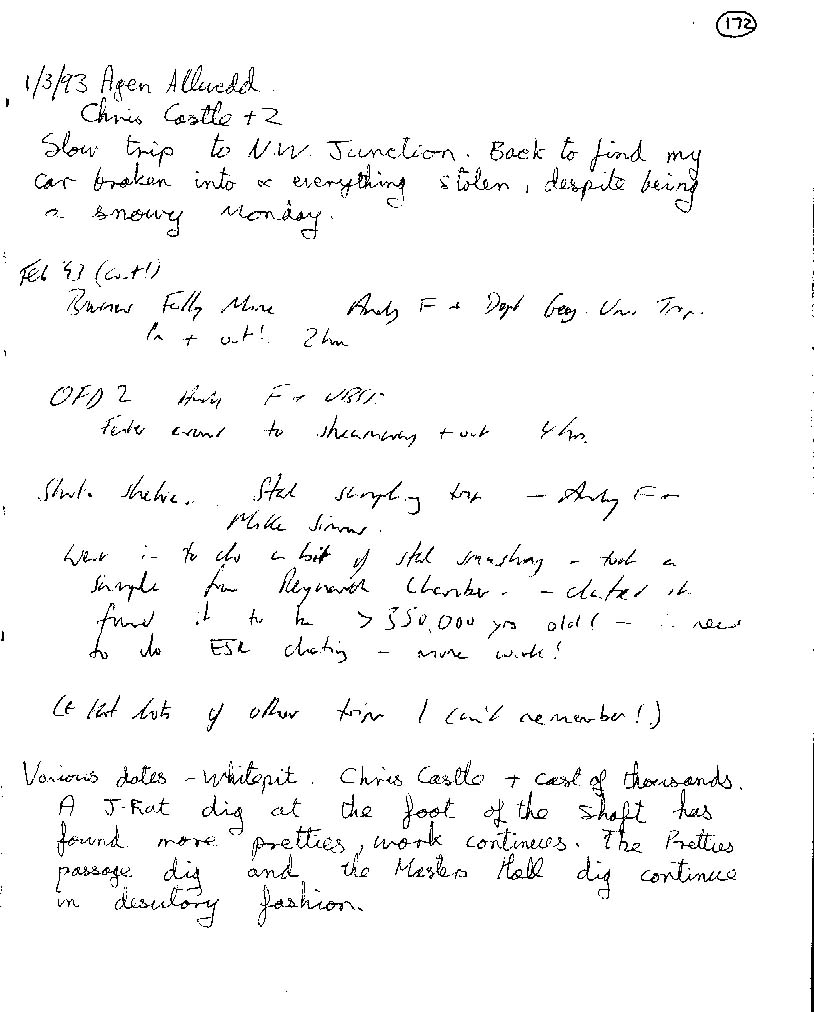 172
1/3/93 Agen Allwedd.
Chris Castle + 2
Slow trip to N.W. Junction. Back to find my
car broken into & everything stolen, despite being
a snowy Monday.
Feb '93 (cont!)
Andy F + Dept Geog. Uni. Trip.
In + out! 2 hrs
OFD 2 Andy F + UBSS.
to streamway + out 4 hrs.
Stal sampling trip - Andy F +
Mike Simms.
Went in to do a bit of stal smashing - took a
sample from Reynard's Chamber. - dated it
found it to be > 350,000 yrs old! - ∴ need
to do ESR dating - more work!
(& lots of other trips I can't remember!)
Various dates - Whitepit. Chris Castle + cast of thousands.
A J-Rat dig at the foot of the shaft has
found more pretties, work continues. The Pretties
passage dig and the Masters Hall dig continue
in desultory fashion.